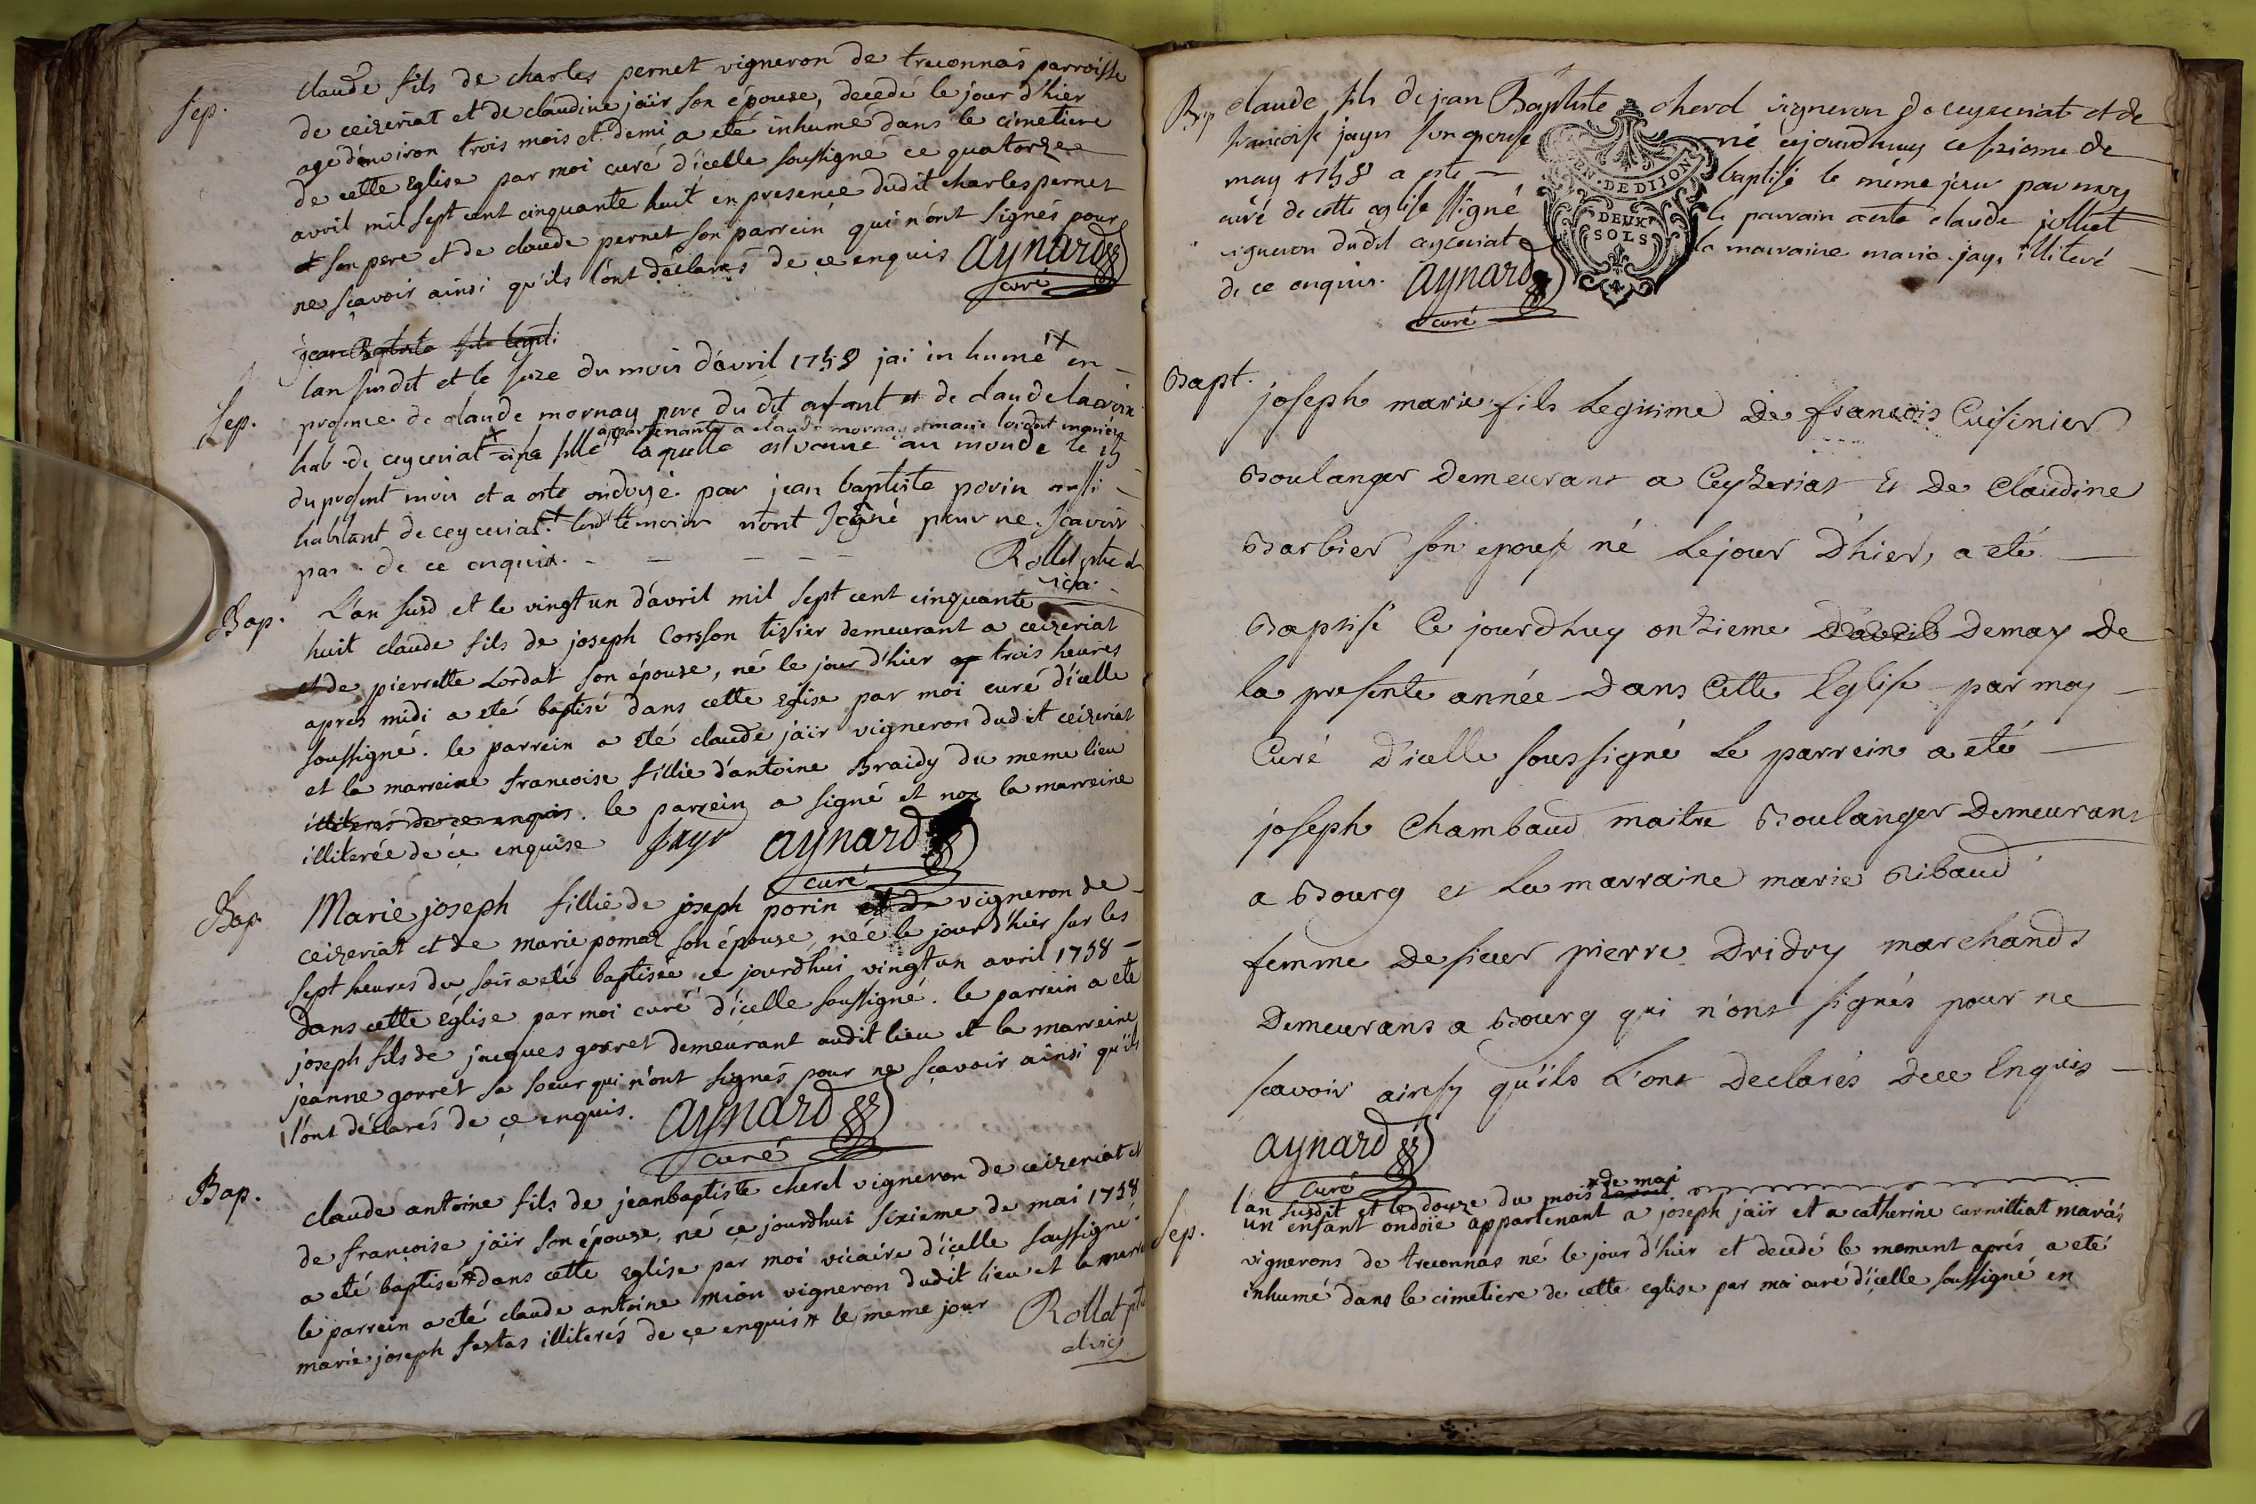 Sep.
claude fils de charles pernet vigneron de treconnas parroisse
de ceizeriat et de claudine jaïr son épouse, decedé le jour d'hier
agé d'environ trois mois et demi a eté inhumé dans le cimetiere
de cette Eglise par moi curé d'icelle soussigné ce quatorze
avril mil sept cent cinquante huit en presence dudit charles pernet
son pere et de claude pernet son parrein qui n'ont signés pour
ne sçavoir ainsi qu'ils l'ont déclarés de ce enquis aynard
curé
jean Baptiste fils legiti
Sep.
lan susdit et le seze du mois d'avril 1758 jai in humé + en
presence de claude mornay pere du dit enfant et de claude lacroix
appartenante a claude mornay et marie lordat mariés
hab. de ceyceriat + une fille laquelle est venue au monde le 15
du present mois et a esté ondoyé par jean baptiste porin aussi
habitant de ceyceriat. lesd temoins n'ont signé pour ne scavoir
par de ce enquis.
Rollet ptre et
vic.
Bap.
L'an susd et le vingt un d'avril mil sept cent cinquante
huit claude fils de joseph Corsson tissier demeurant a ceizeriat
et de pierrette Lordat son épouse, né le jour d'hier a trois heures
apres midi a eté baptisé dans cette Eglise par moi curé d'icelle
soussigné. le parrein a eté claude jaïr vigneron dudit ceizeriat
et la marreine francoise fillie d'antoine Braidy du meme lieu
illiterés de ce enquis. le parrein a signé et non la marreine
illiterée de ce enquise Jayr aynard
curé
Bap.
Marie joseph fillie de joseph porin et de vigneron de
ceizeriat et de marie pomat son épouse, neé le jour d'hier sur les
sept heures du soir a eté baptisée ce jourd'hui vingt un avril 1758
dans cette église par moi curé d'icelle soussigné. le parrein a eté
joseph fils de jacques gorret demeurant audit lieu et la marreine
jeanne gorret sa soeur qui n'ont signés pour ne sçavoir ainsi qu'ils
l'ont déclarés de ce enquis. aynard
curé
Bap.
claude antoine fils de jeanbaptiste cherel vigneron de ceizeriat et
de francoise jaïr son épouse, né ce jourdhui sixieme de mai 1758
a eté baptisé # dans cette Eglise par moi vicaire d'icelle soussigné.
le parrein a eté claude antoine mion vigneron dudit lieu et la marre
marie joseph festas illiterés de ce enquis # le meme jour Rollet ptre
et vic
Bap
claude fils de jean Baptiste cherel vigneron de ceyceriat et de
francoise jayr son epouse né cejourdhuy cesixieme de
may 1758 a esté baptisé le même jour par moy
curé de cette eglise ssigné le parrain a esté claude jolliet
vigneron dudit ceyceriat la marraine marie jayr illiteré
de ce enquis. aynard
curé
GEN. DE DIJON
DEUX
SOLS
Bapt.
joseph marie fils Legitime De francois Cuisinier
Boulanger Demeurant a Ceyzeriat Et De Claudine
Barbier son epouse né Le jour D'hier, a eté
Baptisé Ce jourdhuy onzieme D'avril De may De
la presente année Dans Cette Eglise par moy
Curé D'icelle soussigné Le parrein a eté
joseph Chambaud maitre Boulanger Demeurant
a Bourg et La marraine marie Ribaud
femme De sieur pierre Dridry marchands
Demeurans a Bourg qui n'ont signés pour ne
scavoir ainsy qu'ils L'ont Declarés Dece Enquis
aynard
curé
Sep.
l'an susdit et le douze du mois d'avril * de mai
un enfant ondoïé appartenant a joseph jaïr et a catherine curnilliat mariés
vignerons de treconnas né le jour d'hier et decedé le moment aprés a eté
inhumé dans le cimetiere de cette eglise par moi curé d'icelle soussigné en